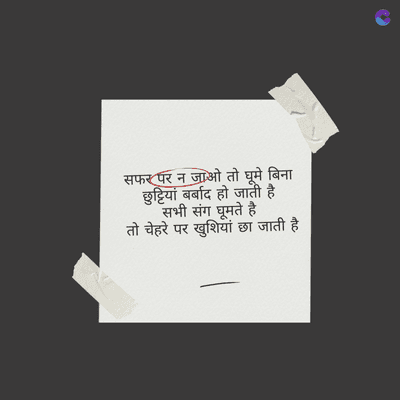 सफर पर न जाओ तो घूमे बिना
छुट्टियां बर्बाद हो जाती है
सभी संग घूमते है
तो चेहरे पर खुशियां छा जाती है